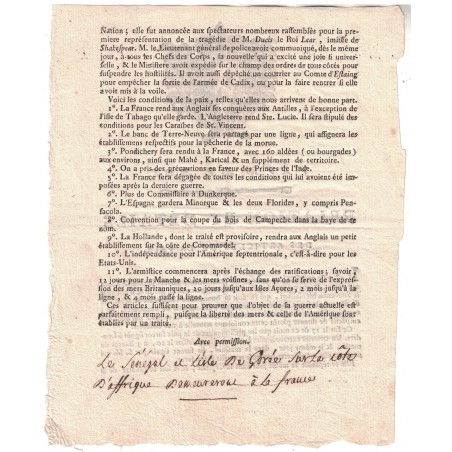 Nation; elle fut annoncée aux spectateurs nombreux rassemblés pour la pre-
miere représentation de la tragédie de M. Ducis le Roi Lear, imitée de
Shakespear. M. le Lieutenant général de police avoit communiqué, dès le même
jour, à tous les Chefs des Corps, la nouvelle qui a excité une joie si univer-
selle, & le Ministere avoit expédié sur le champ des ordres de tous côtés pour
suspendre les hostilités. Il avoit aussi dépêché un courier au Comte d'Estaing
pour empêcher la sortie de l'armée de Cadix, ou pour la faire rentrer si elle
avoit mis à la voile.
Voici les conditions de la paix, telles qu'elles nous arrivent de bonne part.
1°. La France rend aux Anglais ses conquêtes aux Antilles, à l'exception de
l'isle de Tabago qu'elle garde. L'Angleterre rend Ste. Lucie. Il sera stipulé des
conditions pour les Caraïbes de St. Vincent.
2°. Le banc de Terre-Neuve sera partagé par une ligne, qui assignera les
établissemens respectifs pour la pêcherie de la morue.
3°. Pondichery sera rendu à la France, avec 160 aldées (ou bourgades)
aux environs, ainsi que Mahé, Karical & un supplément de territoire.
4°. On a pris des précautions en faveur des Princes de l'Inde.
5°. La France sera dégagée de toutes les conditions qui lui avoient été impo-
sées après la derniere guerre.
6°. Plus de Commissaire à Dunkerque.
7°. L'Espagne gardera Minorque & les deux Florides, y compris Pen-
sacola.
8°. Convention pour la coupe du bois de Campeche dans la baye de ce
nom.
9°. La Hollande, dont le traité est provisoire, rendra aux Anglais un petit
établissement sur la côte de Coromandel.
10°. L'indépendance pour l'Amérique septentrionale, c'est-à-dire pour les
Etats-Unis.
11°. L'armistice commencera après l'échange des ratifications, savoir,
12 jours pour la Manche & les mers voisines, sans qu'on se serve de l'expres-
sion des mers Britanniques, 20 jours jusqu'aux Isles Açores, 2 mois jusqu'à la
ligne, & 4 mois passé la ligne.
Ces articles suffisent pour prouver que l'objet de la guerre actuelle est
parfaitement rempli, puisque la liberté des mers & celle de l'Amérique sont
établies par un traité.
Avec permission.
Le Sénégal et L'isle De Gorée Sur La côte
D'affrique Demeureront à la france